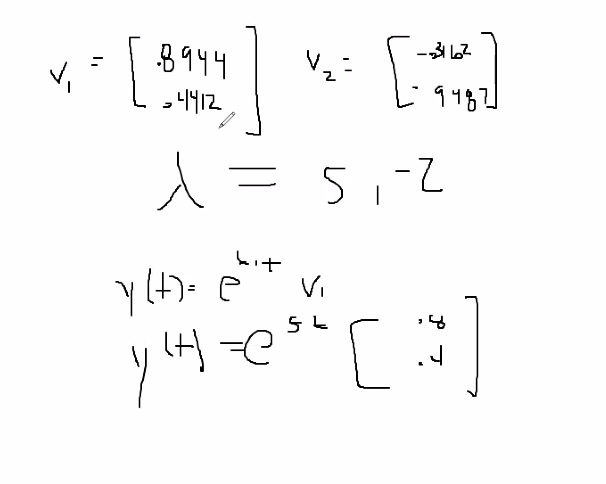 v₁ = [.8944 .4412] v₂ = [-.3162 -.9487]
λ = 5, -2
y(t) = e^{λ₁t} v₁
y(t) = e^{5t} [.8 .4]